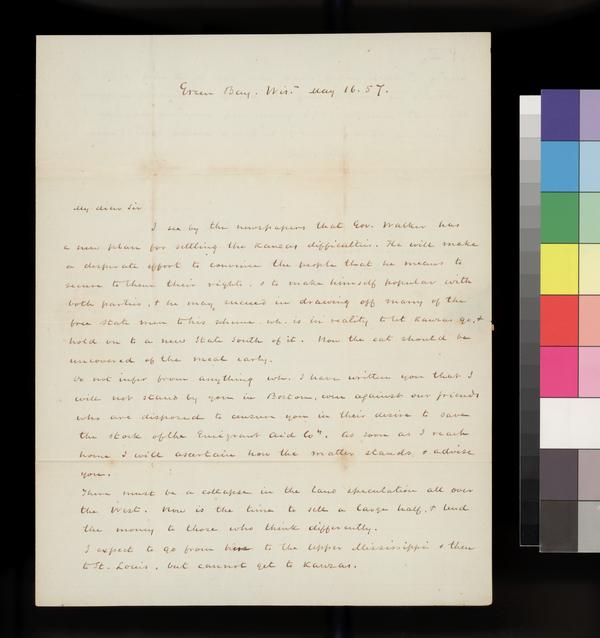 Green Bay. Wis. May 16. 57.
My dear Sir
I see by the newspapers that Gov. Walker has
a new plan for settling the Kansas difficulties. He will make
a desperate effort to convince the people that he means to
secure to them their rights, & to make himself popular with
both parties, & he may succeed in drawing off many of the
free state men to his scheme, wh. is in reality to let Kanzas go, &
hold on to a new State South of it. Now the cat should be
uncovered of the meal early.
Do not infer from anything wh. I have written you that I
will not stand by you in Boston, even against our friends
who are disposed to censure you in their desire to save
the stock of the Emigrant Aid Co. As soon as I reach
home I will ascertain how the matter stands, & advise
you.
There must be a collapse in the land speculation all over
the West. Now is the time to sell a large half, & lend
the money to those who think differently.
I expect to go from here to the upper Mississippi & then
to St. Louis, but cannot get to Kanzas.